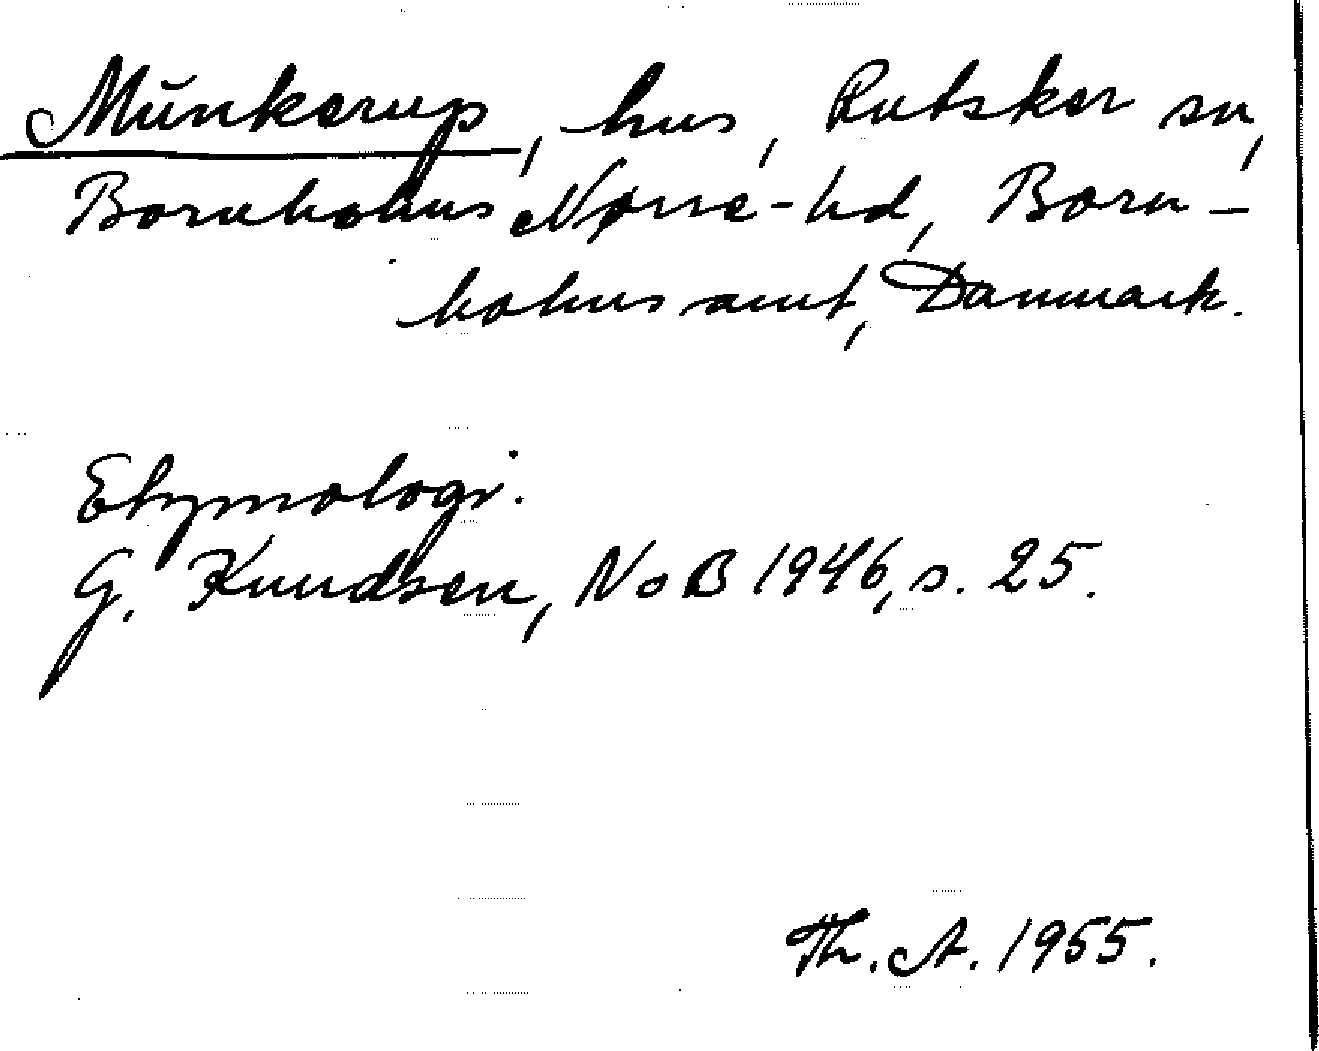 Munkerup, hus, Rutsker sn,
Bornholms Nørre-hd, Born-
holms amt, Danmark.
Etymologi.
G. Knudsen, NoB 1946, s. 25.
Th. A. 1955.